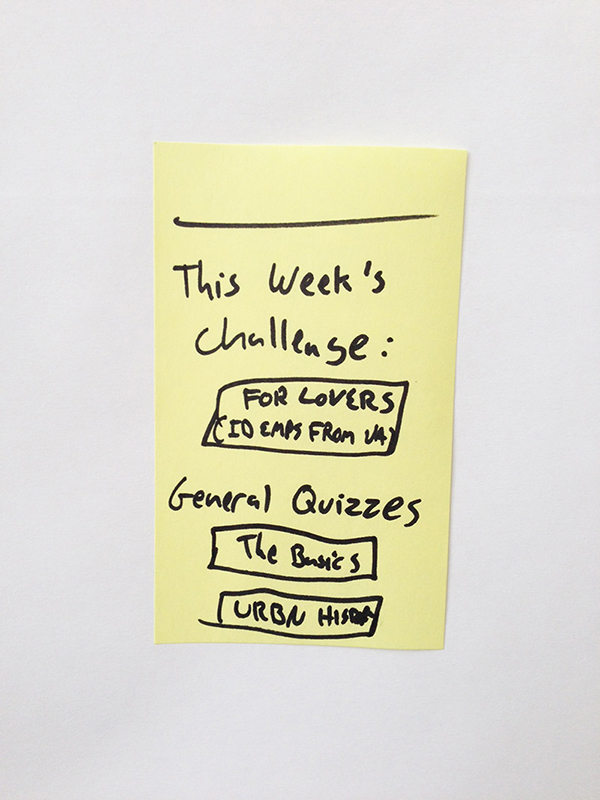 This Week's
Challenge:
FOR LOVERS
(ID EMPS FROM VA)
General Quizzes
The Basics
URBN HISTORY